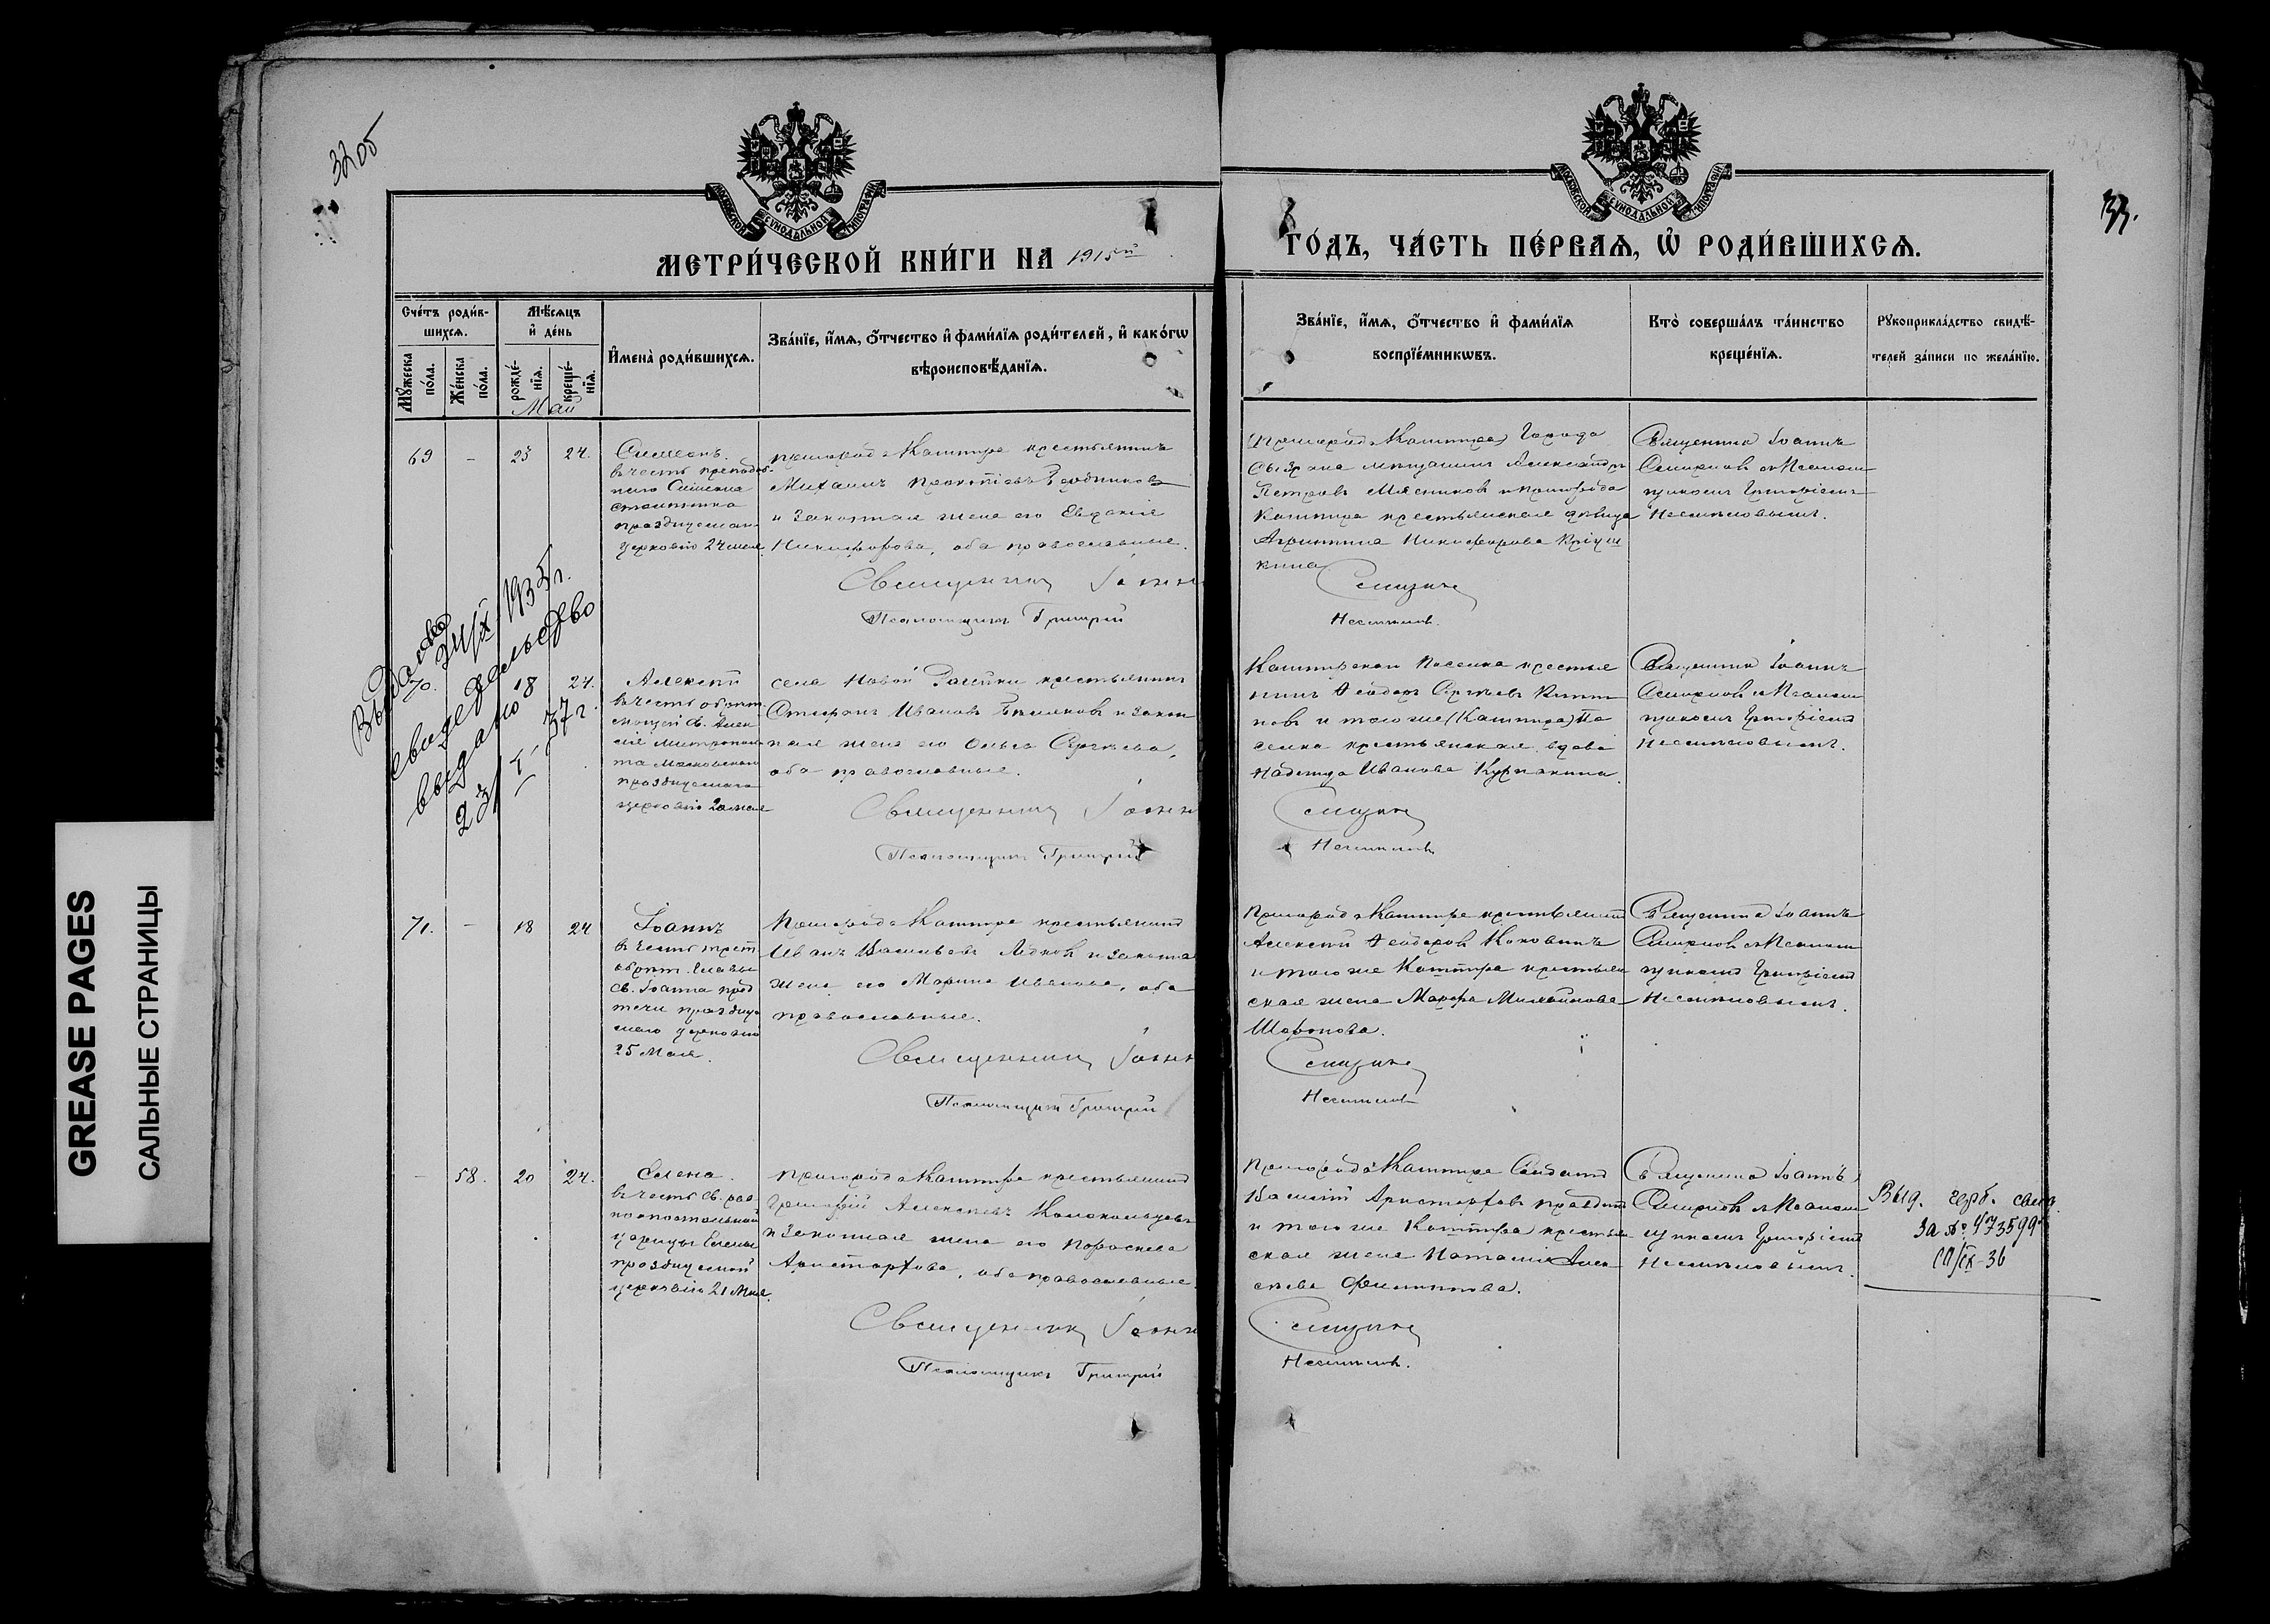 32 об
33.
МОСКОВСКОЙ СУНОДАЛЬНОЙ ТИПОГРАФІИ
МОСКОВСКОЙ СУНОДАЛЬНОЙ ТИПОГРАФІИ
МЕТРИ́ЧЕСКОЙ КНИ́ГИ НА 1915й
ГО́ДЪ, ЧА́СТЬ ПЕ́РВАѦ, Ѡ҆ РОДИ́ВШИХСѦ.
Сче́тъ роди́в-
шихсѧ.
Мꙋ́жеска
по́ла.
Же́нска
по́ла.
Мѣ́сѧцъ
и҆ де́нь
рожде́-
нїѧ.
креще́-
нїѧ.
Май
И҆мена̀ роди́вшихсѧ.
Зва́нїе, и҆́мѧ, ѻ҆́тчество и҆ фами́лїѧ роди́телей, и҆ како́гѡ
вѣроисповѣ́данїѧ.
Зва́нїе, и҆́мѧ, ѻ҆́тчество и҆ фами́лїѧ
воспрїе́мникѡвъ.
Кто̀ соверша́лъ та́инство
креще́нїѧ.
Рꙋкоприкла́дство свидѣ́-
телей за́писи по жела́нїю.
69 - 23 24.
Симеонъ.
въ честь преподоб-
наго Симеона
столпника
празднуемаго
церковію 24 мая
пригорода Кашпира крестьянинъ
Михаилъ Прокопіевъ
и законная жена его Евдокія
Никифорова, оба православные.
Священникъ Іоаннъ
Псаломщикъ Григорій
Пригорода Кашпира Города
Сызрана мещанинъ Александръ
Петровъ Мясников и пригорода
Кашпира крестьянская девица
Агрипина Никифорова
кина
Смирновъ
Несмеловъ.
Священникъ Іоаннъ
Смирновъ съ Псалом
щикомъ Григоріемъ
Несмеловымъ.
70. 18 24.
Выдано 24/IX 1935 г.
свидетельство
выдано
23/I-37 г.
Алексій
въ честь обрет.
мощей св. Алек
сія Митрополи
та Московскаго
празднуемаго
церковію 20 мая
села Новой Рачейки крестьянинъ
Иванов и закон
ная жена его Ольга Сергеева,
оба православные.
Священникъ Іоаннъ
Псаломщикъ Григорій
Кашпирскаго Поселка крестья
нинъ Ѳеодоръ Сергеевъ
новъ и того же (Кашпира) По
селка крестьянская вдова
Надежда Иванова
Смирновъ
Несмеловъ
Священникъ Іоаннъ
Смирновъ съ Псалом
щикомъ Григоріемъ
Несмеловымъ.
71. - 18 24
Іоаннъ
въ честь трет.
обрет. главы
св. Іоанна пред
течи праздну
емаго церковію
25 Мая.
Пригорода Кашпира крестьянинъ
Иванъ Васильевъ и законна
жена его Марина Иванова, оба
православные.
Священникъ Іоаннъ
Псаломщикъ Григорій
Пригорода Кашпира крестьянинъ
Алексій Ѳеодоровъ
и того же Кашпира крестьян
ская жена Михайлова
Шаронова.
Смирновъ
Несмеловъ
Священникъ Іоаннъ
Смирновъ съ Псалом
щикомъ Григоріемъ
Несмеловымъ.
- 58. 20 24.
Елена.
въ честь св. рав
ноапостольной
царицы Елены
празднуемой
церковію 21 Мая.
Пригорода Кашпира крестьянинъ
Григорій Алексеевъ Колокольцевъ
и законная жена его Параскева
Аристархова, оба православные.
Священникъ Іоаннъ
Псаломщикъ Григорій
Пригорода Кашпира Солдатъ
Василій Аристарховъ
и того же Кашпира крестьян
ская жена Наталія Алек
сеева Филиппова.
Смирновъ
Несмеловъ.
Священникъ Іоаннъ
Смирновъ съ Псалом
щикомъ Григоріемъ
Несмеловымъ.
Выд. герб. свид.
за № 473599
/IX-36
GREASE PAGES
САЛЬНЫЕ СТРАНИЦЫ